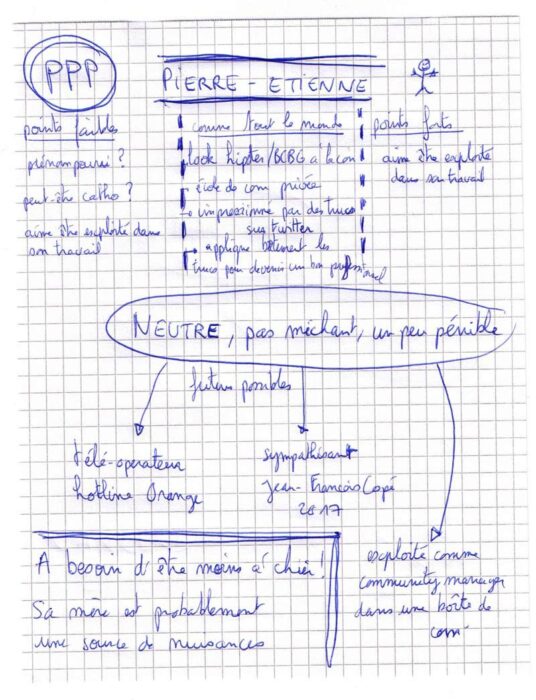 PPP
PIERRE-ETIENNE
points faibles
prénom pourri ?
peut-être catho ?
aime être exploité dans
son travail
comme tout le monde
look hipster/BCBG à la con
école de com privée
impressionné par des trucs
sur twitter
applique bêtement les
trucs pour devenir un bon professionnel
points forts
aime être exploité
dans son travail
NEUTRE, pas méchant, un peu pénible
futurs possibles
télé-operateur
hotline Orange
sympathisant
Jean-François Copé
2017
exploité comme
community manager
dans une boîte de
com'
A besoin d'être moins à chier!
Sa mère est probablement
une source de nuisances